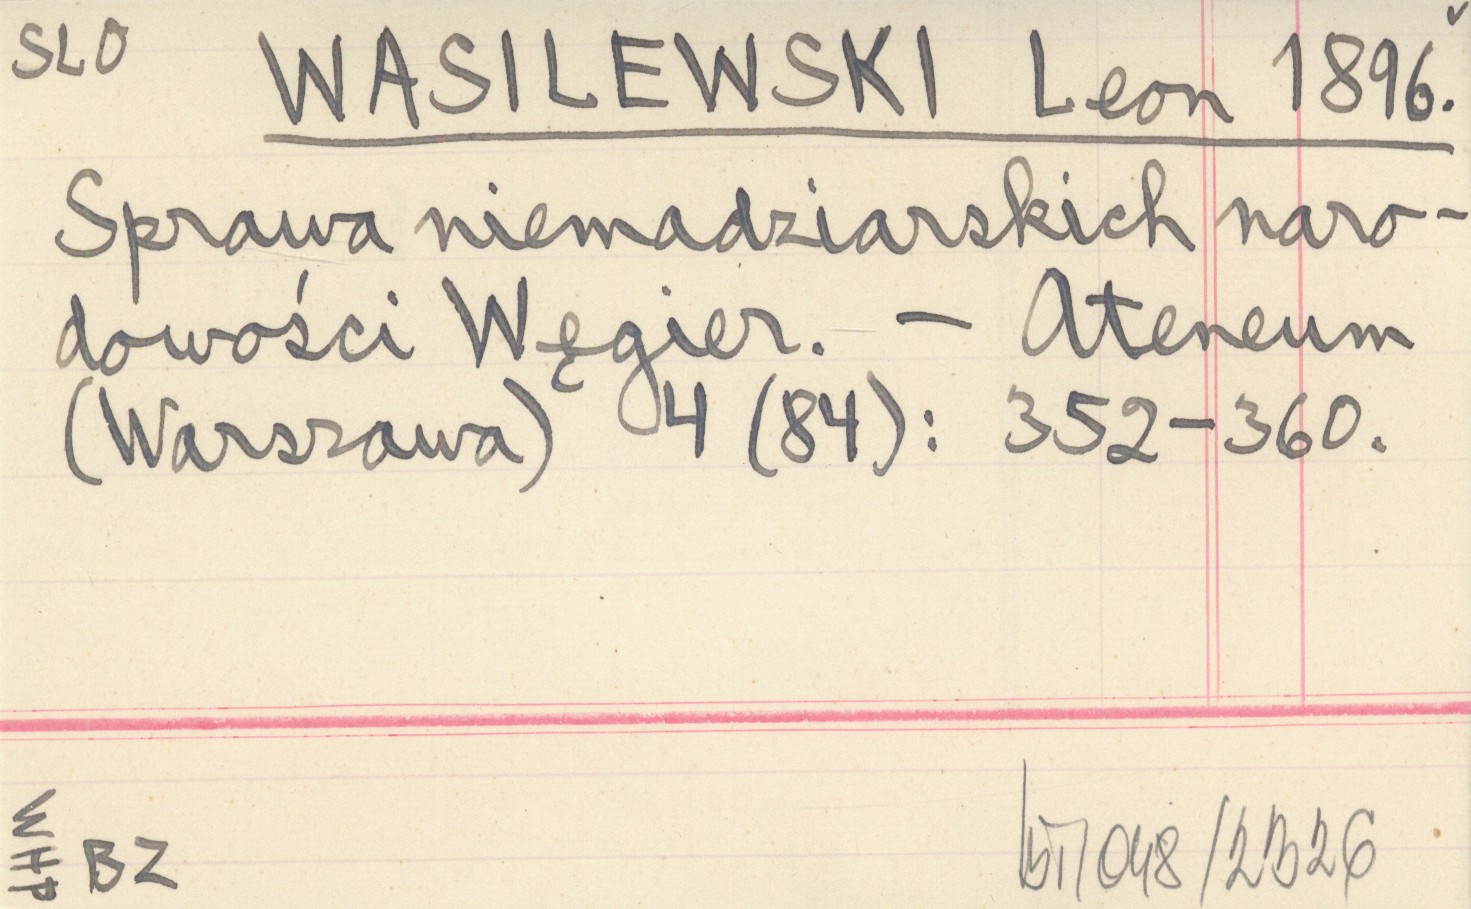 SLO
WASILEWSKI Leon 1896.
Sprawa niemadziarskich naro-
dowości Węgier. — Ateneum
(Warszawa) 4 (84): 352-360.
WHP
BZ